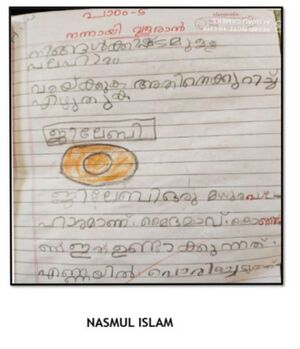 പാഠം-5
നന്നായി വളരാൻ
നിങ്ങൾക്കിഷ്ടമുള്ള
പലഹാരം
വരയ്ക്കുക അതിനെക്കുറിച്ച്
എഴുതുക
ജിലേബി
ജിലേബി ഒരു മധുരപല
ഹാരമാണ്. മൈദമാവ് കൊണ്ടാ
ണ് ഇത് ഉണ്ടാക്കുന്നത്.
എണ്ണയിൽ പൊരിച്ചടുത്ത്
NASMUL ISLAM